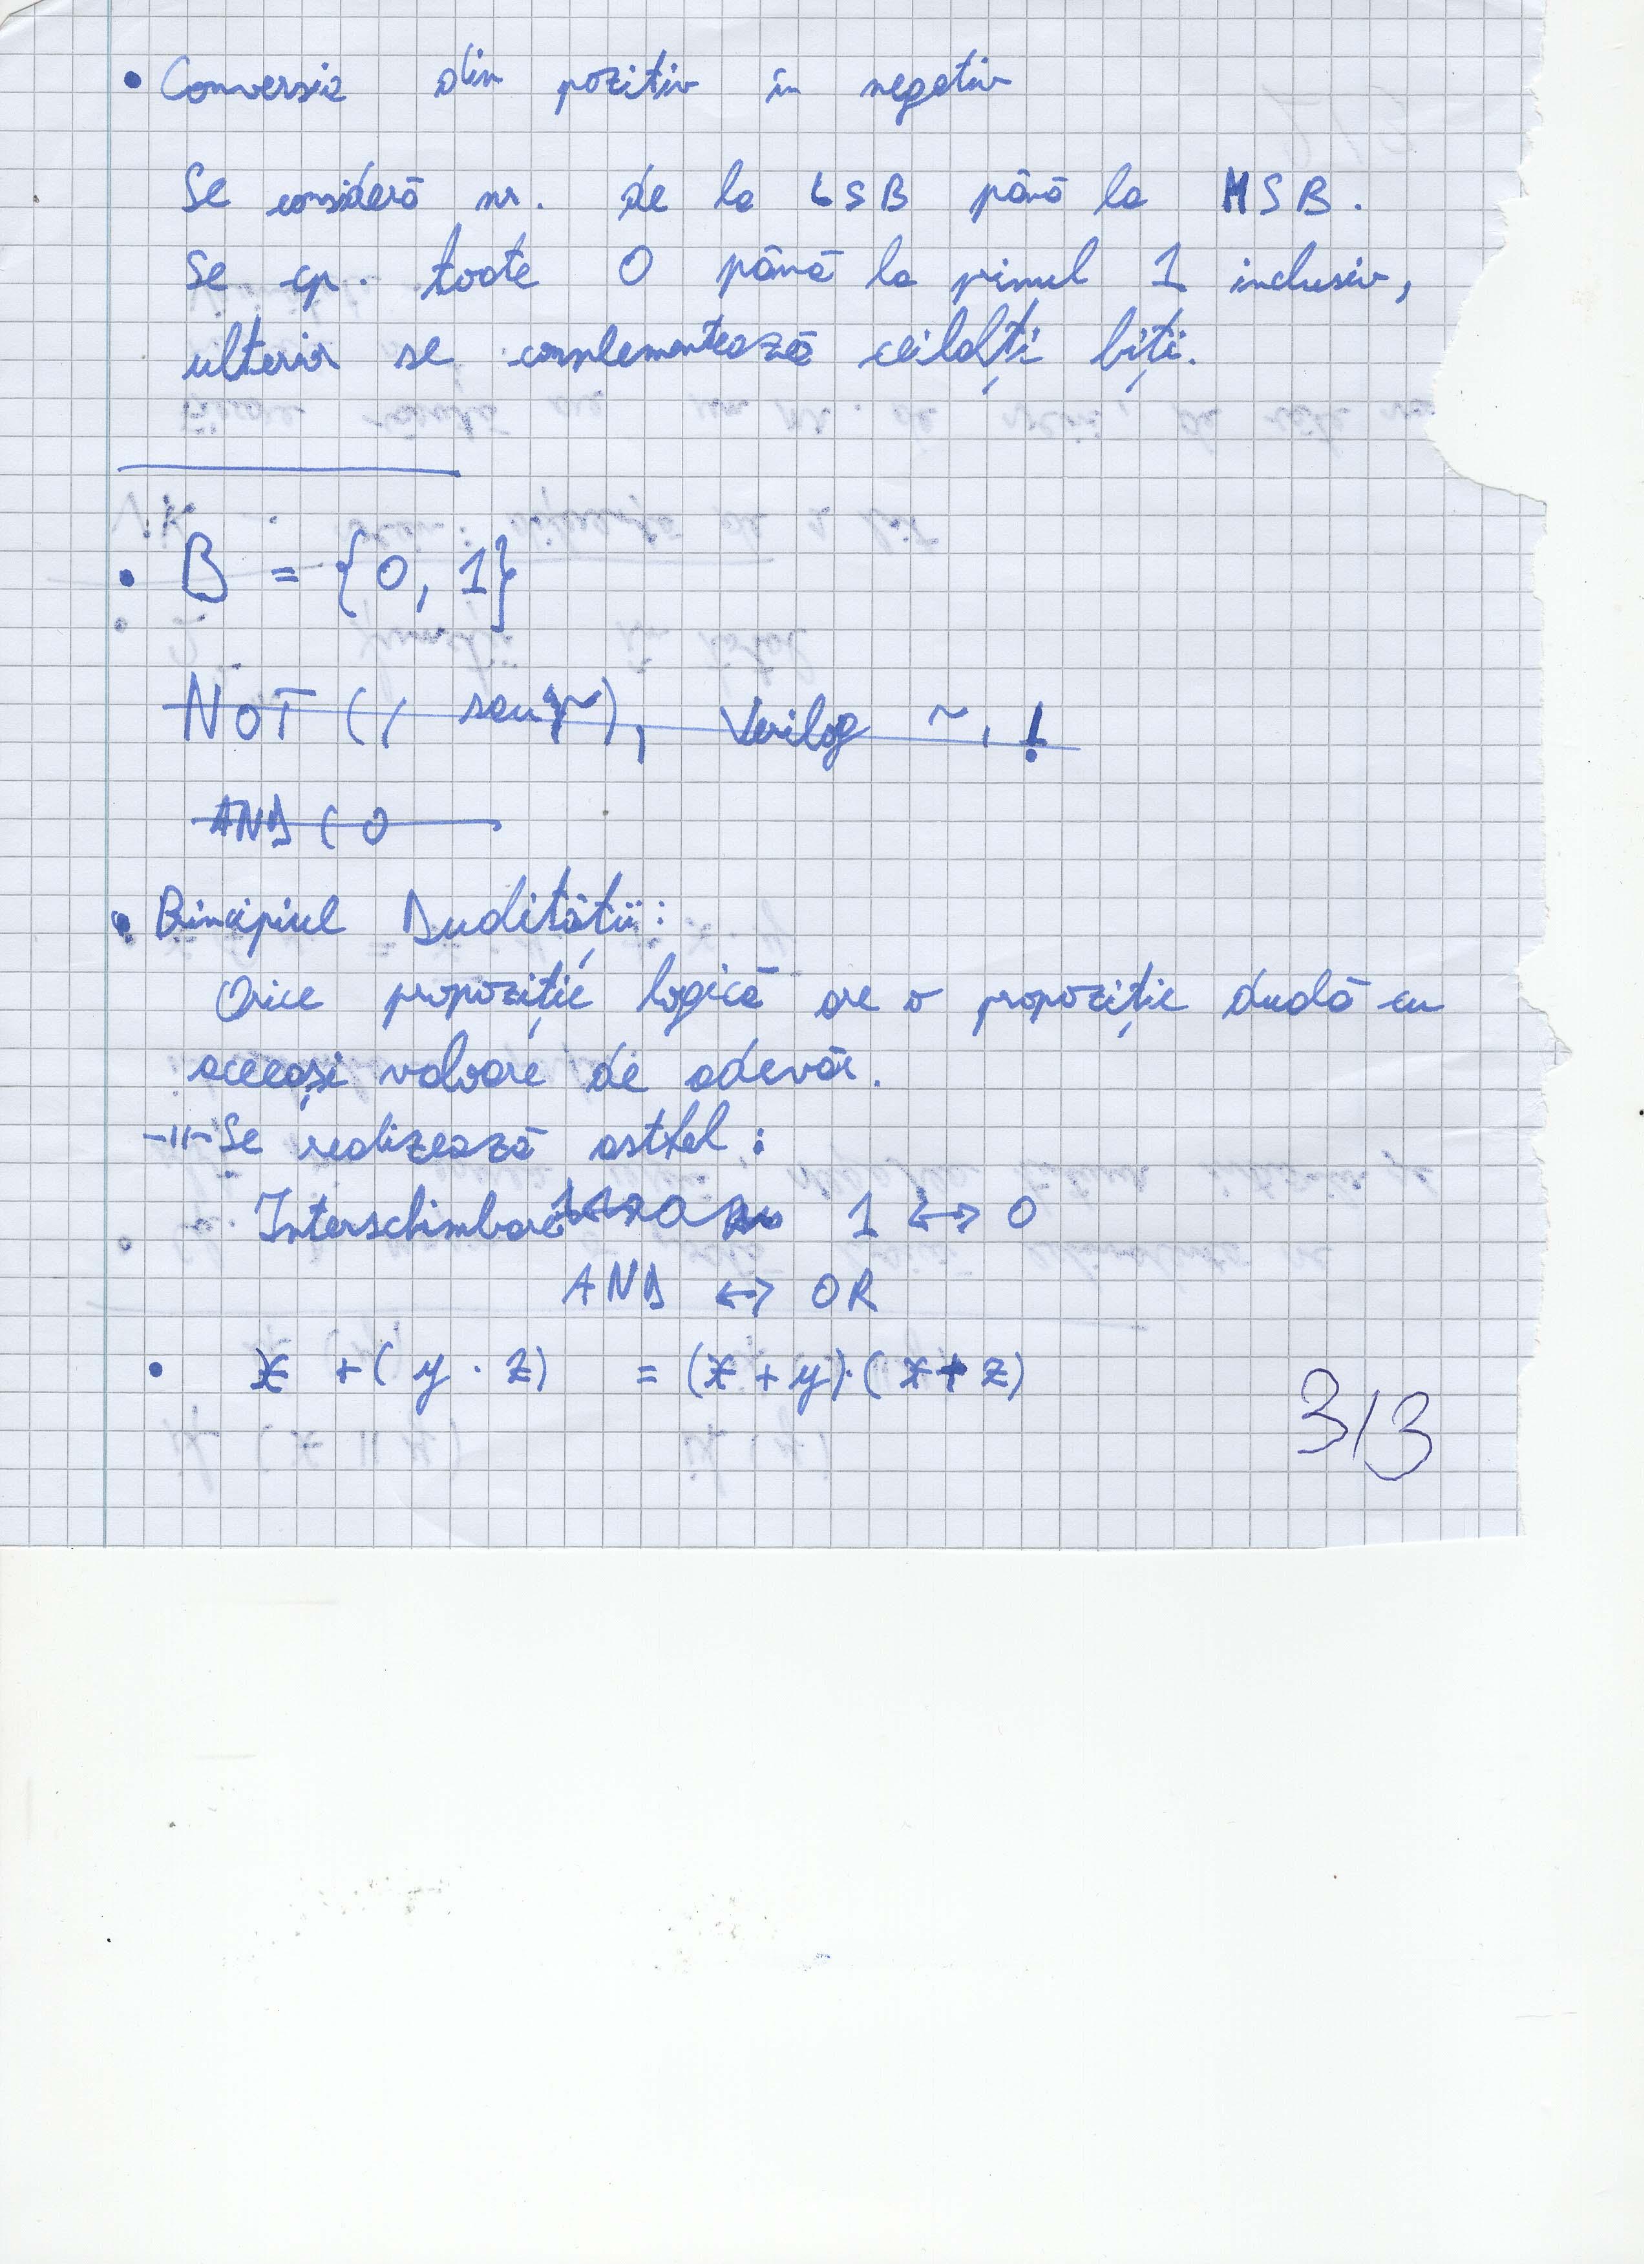 • Conversia din pozitiv în negativ
Se consideră nr. de la LSB până la MSB.
Se cp. toate 0 până la primul 1 inclusiv,
ulterior se complementează ceilalți biți.
• B = {0, 1}
NOT (/ sau ~), Verilog ~, !
AND ( 0
• Principiul Dualității:
Orice propoziție logică are o propoziție duală cu
aceeași valoare de adevăr.
-11- Se realizează astfel:
Interschimbare 1 ↔ 0
AND ↔ OR
• x + ( y · z) = (x + y) · ( x + z)
3/3